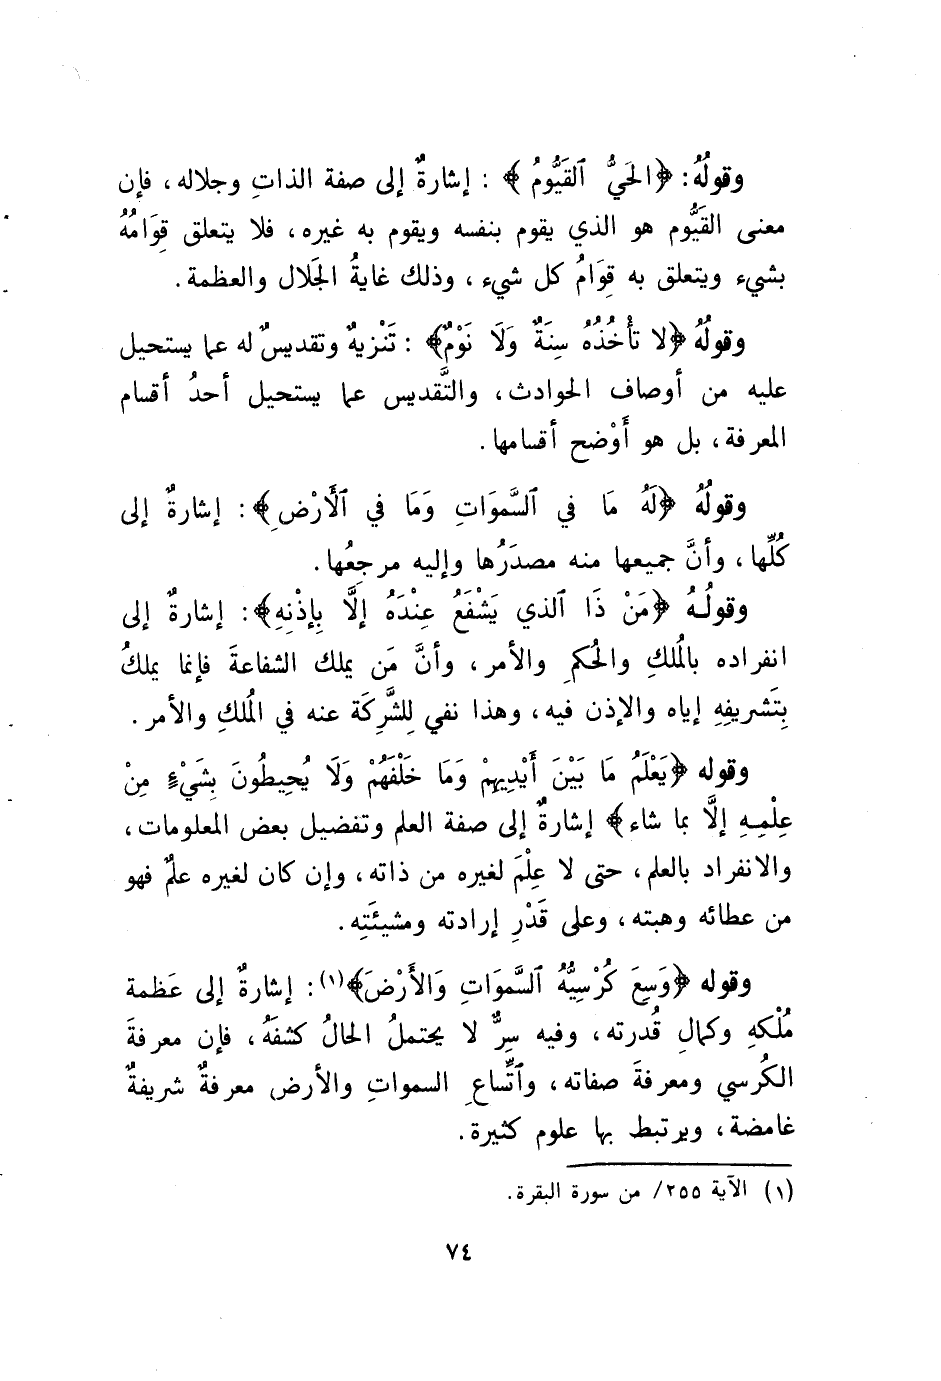 وقولُهُ: ﴿الحَيُّ ٱلقَيُّومُ﴾ : إشارةٌ إلى صفة الذاتِ وجلاله، فإن
معنى القَيُّوم هو الذي يقوم بنفسه ويقوم به غيره، فلا يتعلق قِوَامُهُ
بشيء ويتعلق به قِوَامُ كل شيء، وذلك غايةُ الجَلال والعظمة.
وقولُهُ ﴿لا تأْخُذُهُ سِنَةٌ وَلَا نَوْمٌ﴾ : تَنْزيهٌ وتقديسٌ له عما يستحيل
عليه من أوصاف الحوادث، والتَّقديس عما يستحيل أحدُ أقسام
المعرفة، بل هو أَوْضح أقسامها.
وقولُهُ ﴿لَهُ مَا في ٱلسَّموَاتِ وَمَا في ٱلأَرْضِ﴾: إشارةٌ إلى
كُلِّها، وأنَّ جميعها منه مصدَرُها وإليه مرجِعُها.
وقولُهُ ﴿مَنْ ذَا ٱلذي يَشْفَعُ عِنْدَهُ إلَّا بِإذْنِهِ﴾: إشارةٌ إلى
انفراده بالمُلكِ والحُكمِ والأمر، وأنَّ مَن يملك الشفاعةَ فإنما يملكُ
بِتَشريفِهِ إياه والإذن فيه، وهذا نفي لِلشَّرِكَة عنه في المُلكِ والأمر.
وقوله ﴿يَعْلَمُ مَا بَيْنَ أَيْدِيهِمْ وَمَا خَلْفَهُمْ وَلَا يُحِيطُونَ بِشَيْءٍ مِنْ
عِلْمِهِ إلَّا بما شاء﴾ إشارةٌ إلى صفة العلم وتفضيل بعض المعلومات،
والانفراد بالعلم، حتى لا عِلْمَ لغيره من ذاته، وإن كان لغيره علمٌ فهو
من عطائه وهبته، وعلى قَدْرِ إرادته ومشيئَتِه.
وقوله ﴿وَسِعَ كُرْسِيُّهُ ٱلسَّموَاتِ وَالأَرْضَ﴾(١): إشارةٌ إلى عَظمة
مُلْكهِ وكمالِ قُدرته، وفيه سِرٌّ لا يحتملُ الحالُ كشفَهُ، فإن معرفةَ
الكُرسي ومعرفةَ صفاته، وٱتِّساعِ السمواتِ والأرض معرفةٌ شريفةٌ
غامضة، ويرتبط بها علوم كثيرة.
(١) الآية ٢٥٥/ من سورة البقرة.
٧٤